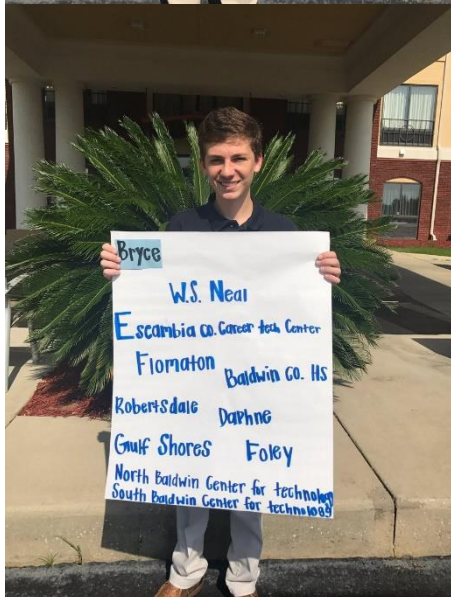 Bryce
W.S. Neal
Escambia co. Career tech Center
Flomaton
Baldwin Co. HS
Robertsdale
Daphne
Gulf Shores
Foley
North Baldwin Center for technology
South Baldwin Center for technology